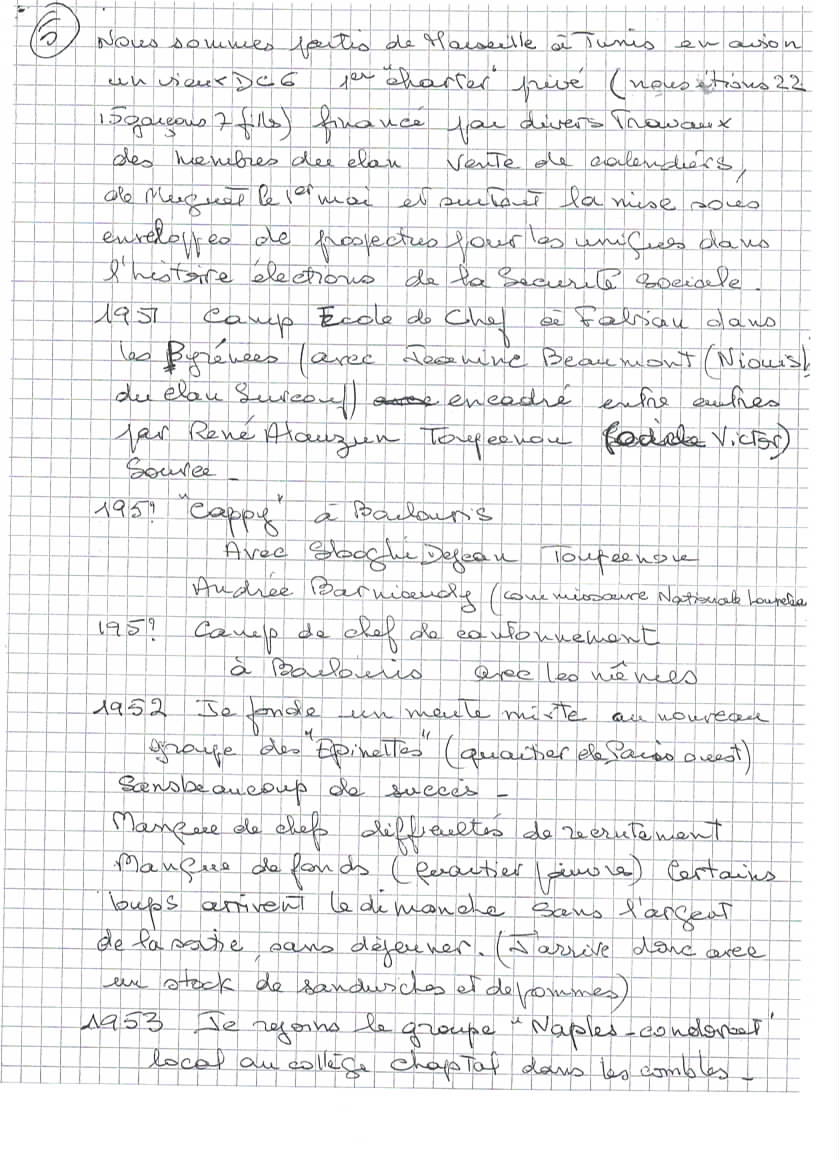 5 Nous sommes partis de Marseille à Tunis en avion
un vieux DC6 1er "charter" privé (nous étions 22
15 garçons 7 filles) financé par divers Travaux
des membres du clan vente de calendriers,
de Muguet le 1er mai et surtout la mise sous
enveloppes de prospectus pour les uniques dans
l'histoire élections de la Securité Sociale.
1951 Camp Ecole de Chef à dans
les Pyrénées (avec Jeannine Beaumont (Niouis)
du clan Surcouf) encadré entre autres
par René Toupeenou Victor)
Source -
195? "Cappy" à
Avec Sloghi Dejean Toupeenou
Andrée (commissaire Nationale
195? Camp de chef de cantonnement
à avec les mêmes
1952 Je fonde un meute mixte au nouveau
groupe des "Epinettes" (quartier de Paris ouest)
Sans beaucoup de succès -
Manque de chefs difficultés de recrutement
Manque de fonds (Quartier pauvre) Certains
loups arrivent le dimanche sans l'argent
de la sortie, sans déjeuner. (J'arrive donc avec
un stock de sandwiches et de pommes)
1953 Je rejoins le groupe "Naples-condorcet"
local au collège chaptal dans les combles -